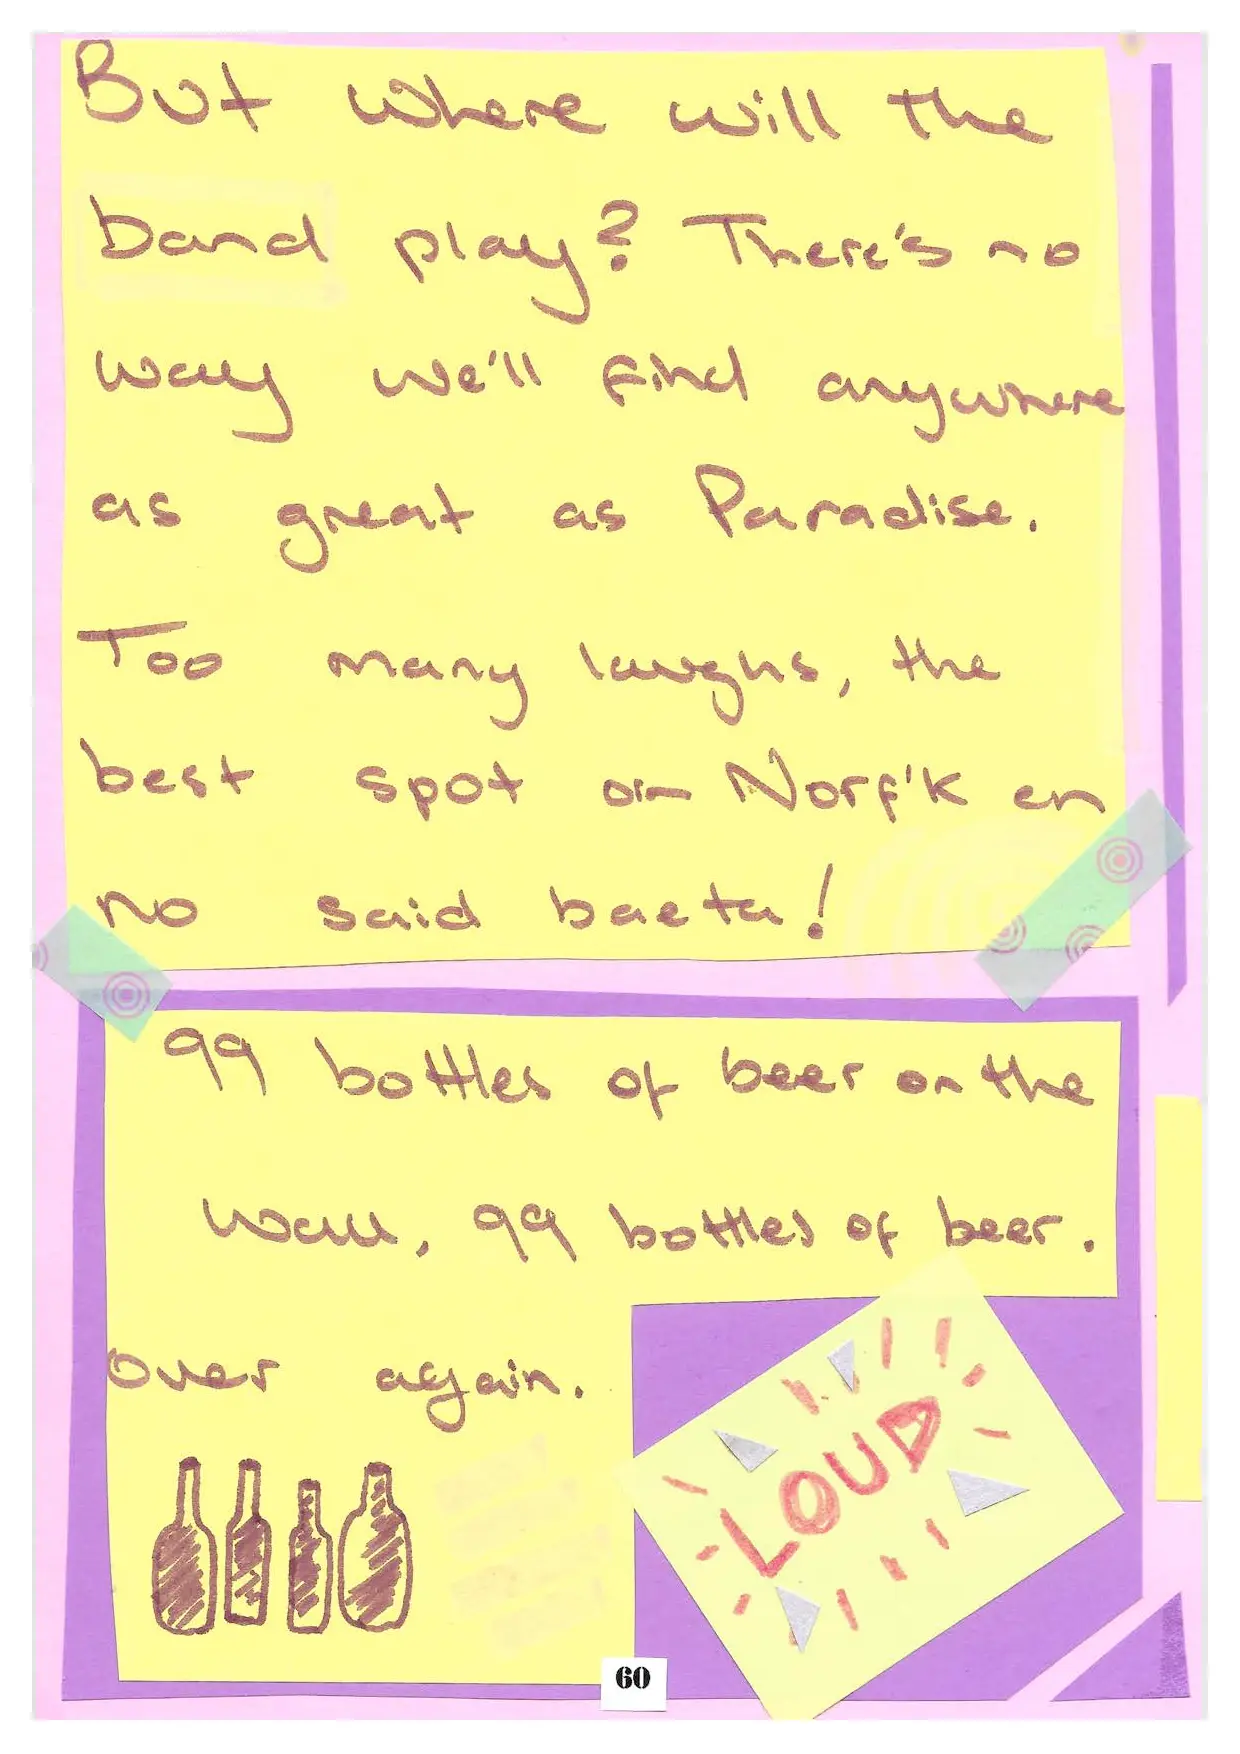 But where will the
band play? There's no
way we'll find anywhere
as great as Paradise.
Too many laughs, the
best spot orn Norf'k en
no said baeta!
99 bottles of beer on the
wall, 99 bottles of beer.
over again.
LOUD
60